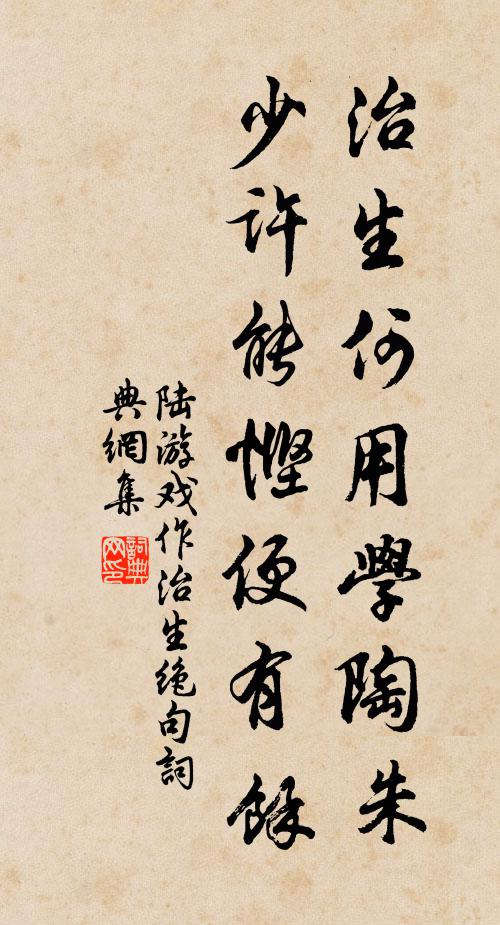 治生何用學陶朱
少許能慳便有餘
陆游戏作治生绝句詞
典網集
詞典网印